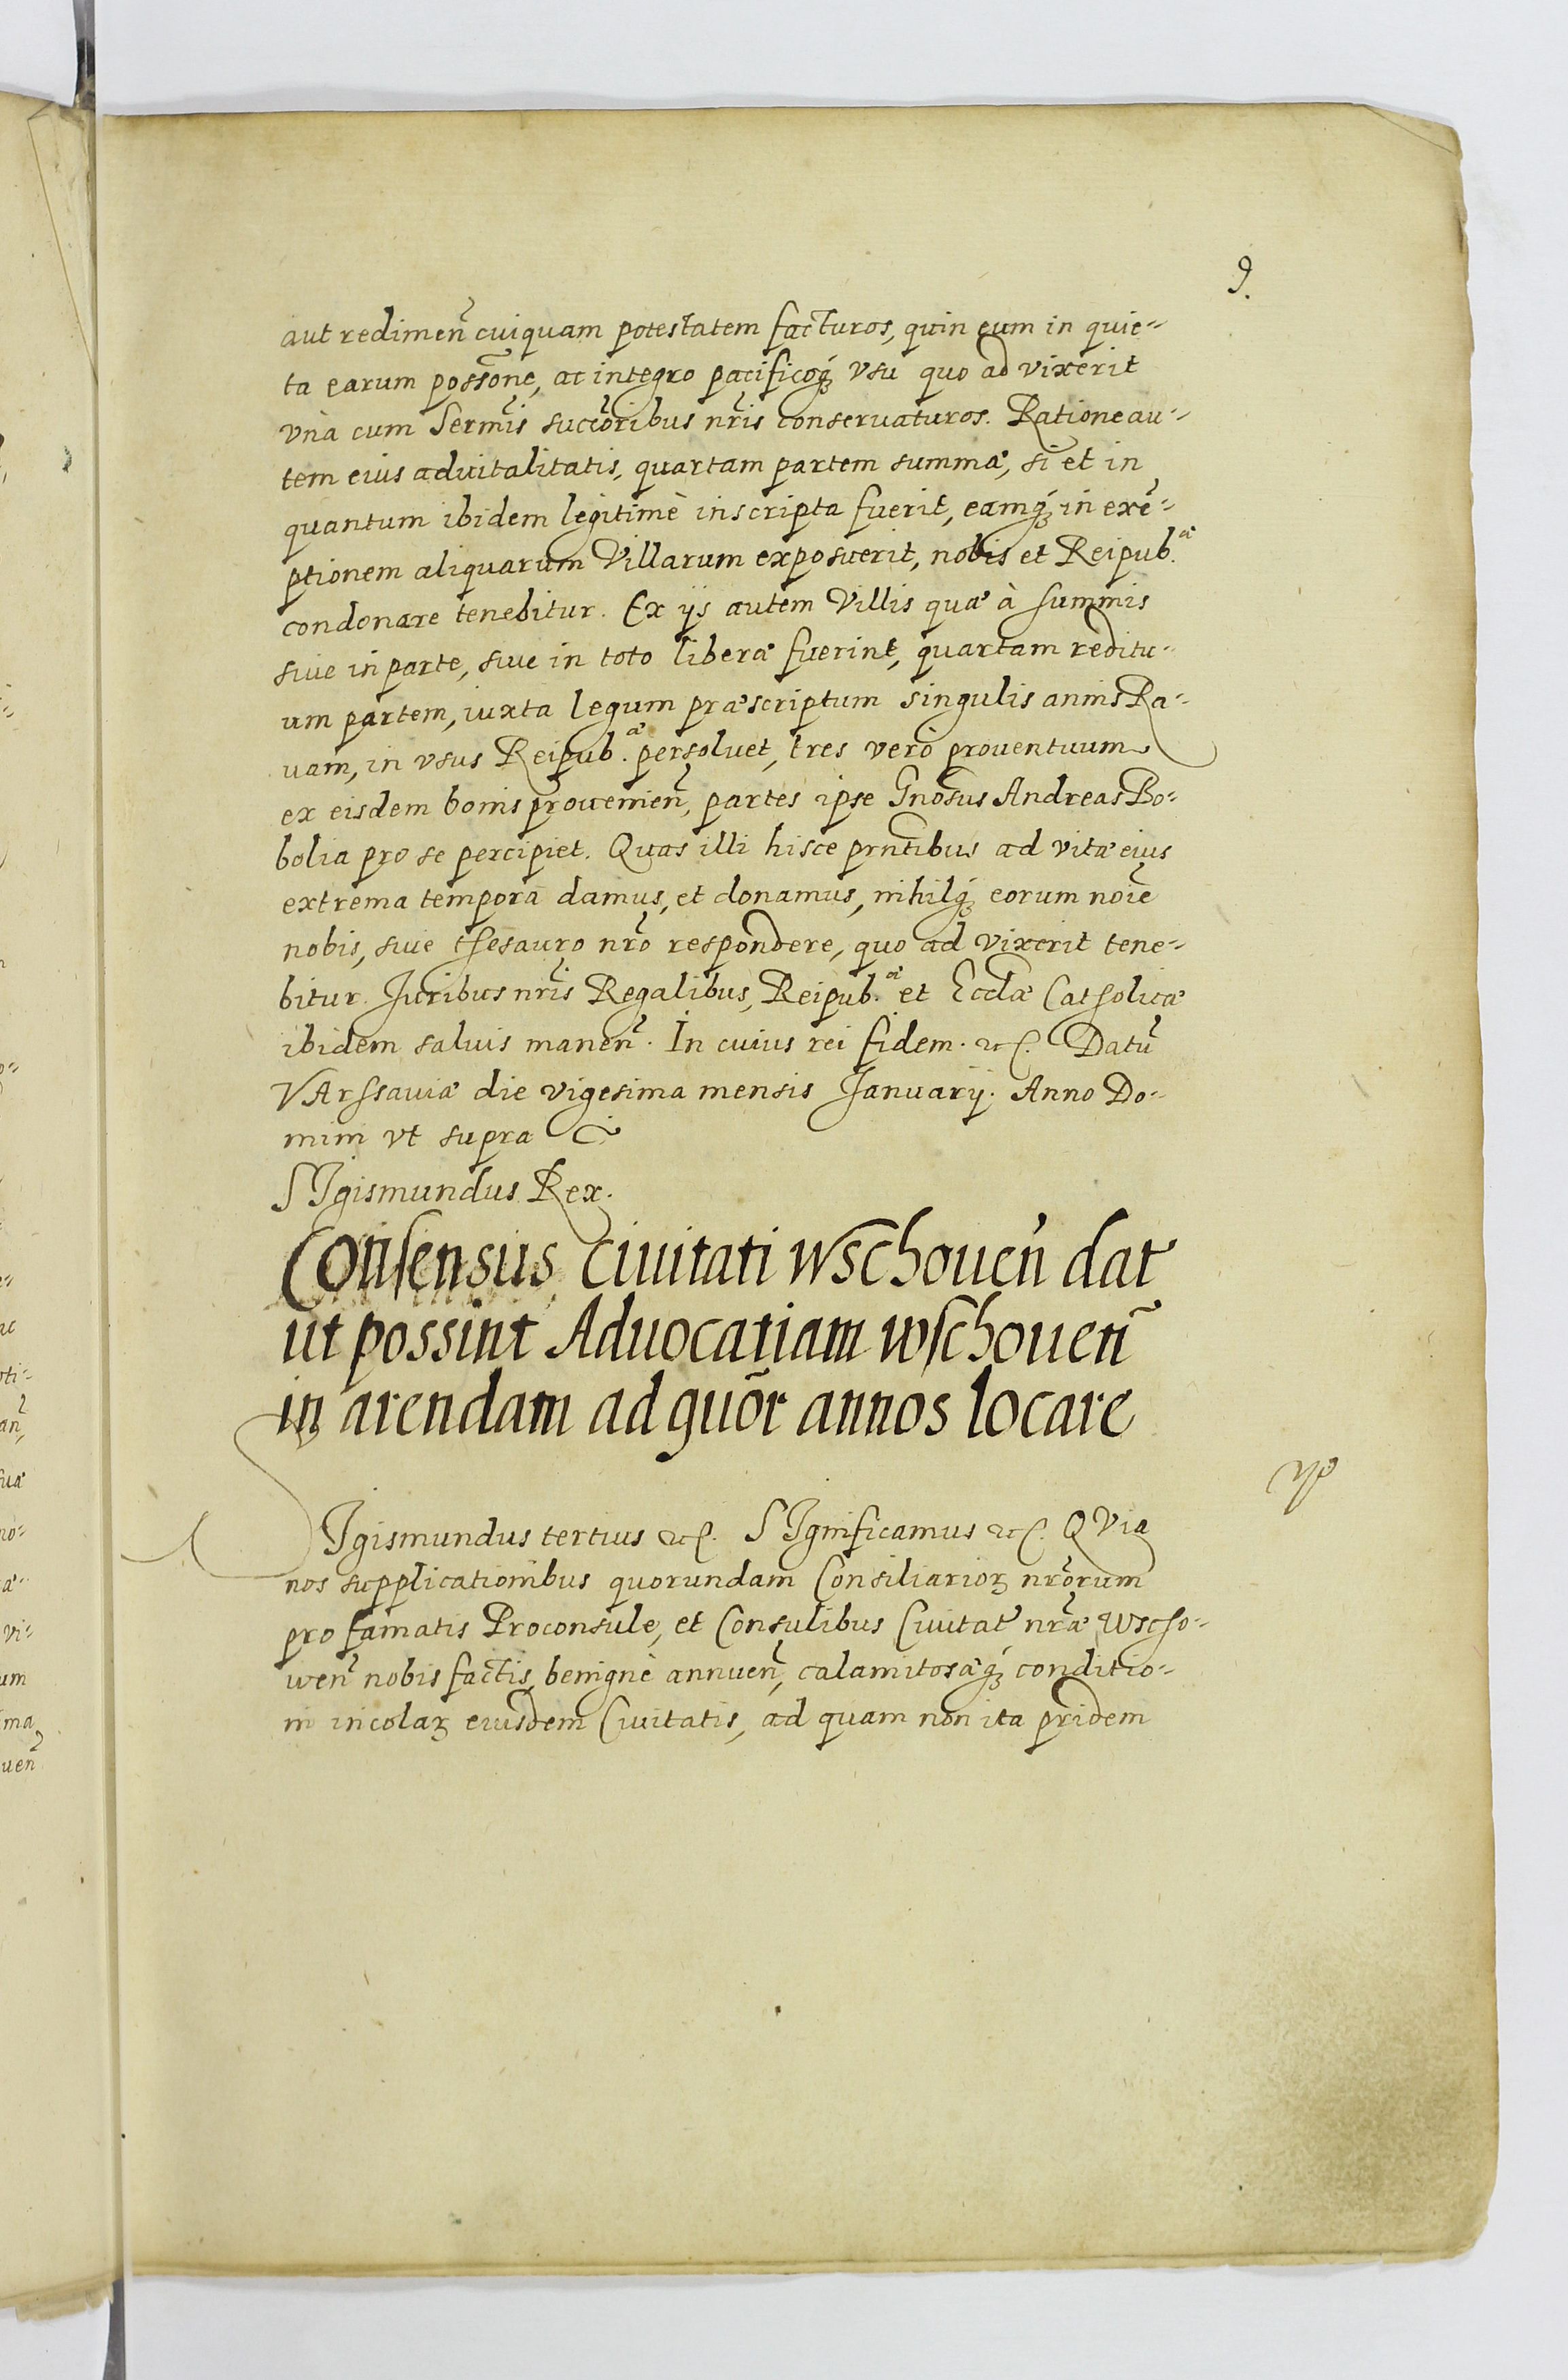 9.
aut redimen̄ cuiquam potestatem facturos, quin eum in quie-
ta earum possōne, ac integro pacificoq́ʒ vsu quo ad vixerit
vnà cum Serm̄is succōribus nr̄is conseruaturos. Ratione au-
tem eius aduitalitatis, quartam partem summæ, si et in
quantum ibidem legitimè inscripta fuerit, eamq́ʒ in exē-
ptionem aliquarum Villarum exposuerit, nobis et Reipub.æ
condonare tenebitur. Ex ijs autem Villis quæ à summis
siue in parte, siue in toto liberæ fuerint, quartam reditu-
um partem, iuxta legum præscriptum singulis annis Ra-
uam, in vsus Reipub.æ persoluet, tres verò prouentuum
ex eisdem bonis prouenien̄, partes ipse Gnōsus Andreas Bo-
bolia pro se percipiet. Quas illi hisce prn̄tibus ad vitæ eius
extrema tempora damus, et donamus, nihilq́ʒ eorum noīe
nobis, siue thesauro nrō respondere, quo ad vixerit tene-
bitur. Juribus nr̄is Regalibus, Reipub.æ et Eccl̄æ Catholicæ
ibidem saluis manen̄. In cuius rei fidem. etc. Datū
VArssauiæ die vigesima mensis Januarij. Anno Do-
mini vt supra
SIgismundus Rex.
Consensus Ciuitati Wschouen̄ dat
ut possint Aduocatiam wschouen̄
in arendam ad quōr annos locare
SIgismundus tertius etc. SIgnificamus etc. QVia
nos supplicationibus quorundam Consiliarioꝝ nrōrum
pro famatis Proconsule, et Consulibus Ciuitat nrǣ Wscho-
wen̄ nobis factis, benignè annuen̄, calamitosæq́ʒ conditio-
ni incolaꝝ eiusdem Ciuitatis, ad quam non ita pridem